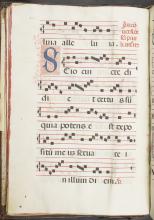 luia alle lu ia.
Scio cui cre di
di et certus su
quia potens est depo
situ me us serua re i
in illum di em